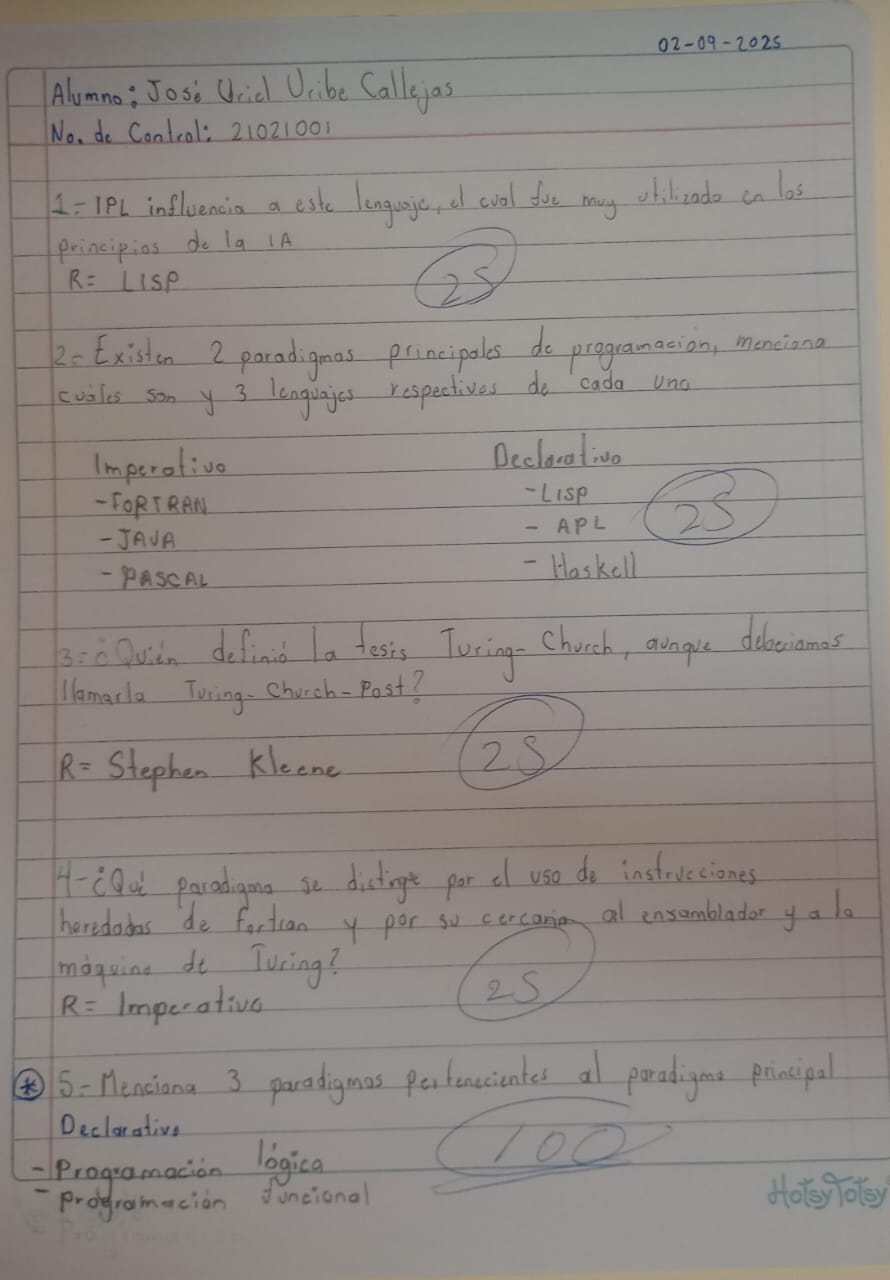 02-09-2025
Alumno: José Uriel Uribe Callejas
No. de Control: 21021001
1- IPL influencia a este lenguaje, el cual fue muy utilizado en los
principios de la IA
R= LISP
25
2- Existen 2 paradigmas principales de programación, menciona
cuáles son y 3 lenguajes respectivos de cada uno
Imperativo
Declarativo
-FORTRAN
-LISP
25
-JAVA
- APL
-PASCAL
- Haskell
3- ¿Quién definió la tesis Turing-Church, aunque deberiamos
llamarla Turing-Church-Post?
R= Stephen Kleene
25
4- ¿Qué paradigma se distinge por el uso de instrucciones
heredadas de fortran y por su cercania al ensamblador y a la
máquina de Turing?
R= Imperativo
25
* 5- Menciona 3 paradigmas pertenecientes al paradigma principal
Declarativo
100
- Programación lógica
- Programación funcional
HotsyTotsy